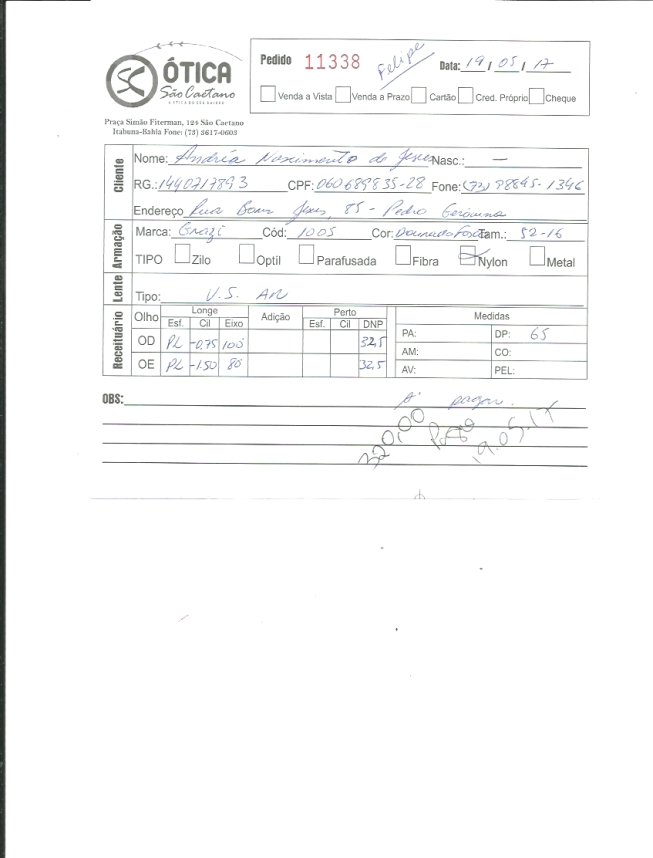 ÓTICA
São Caetano
Praça Simão Fiterman, 124 São Caetano
Itabuna-Bahia Fone: (73) 3617-0603
Pedido 11338 Felipe Data: 19/05/17
Venda a Vista Venda a Prazo Cartão Cred. Próprio Cheque
Cliente
Nome: Andréa Nascimento de Jesus Nasc.: —
RG.: 1440717893 CPF: 060689835-28 Fone: (73) 98845-1346
Endereço Rua Bom Jesus, 85 - Pedro
Armação
Marca: Grazi Cód: 1005 Cor: Dourado Fosco Tam.: 52-16
TIPO Zilo Optil Parafusada Fibra Nylon Metal
Lente
Tipo: V.S. AR
Receituário
Olho Longe Adição Perto Medidas
Esf. Cil Eixo Esf. Cil DNP
OD PL -0,75 100 32,5 PA: DP: 65
AM: CO:
OE PL -1.50 80 32,5 AV: PEL:
OBS: A pagar.
320,00 Pago 19.05.17